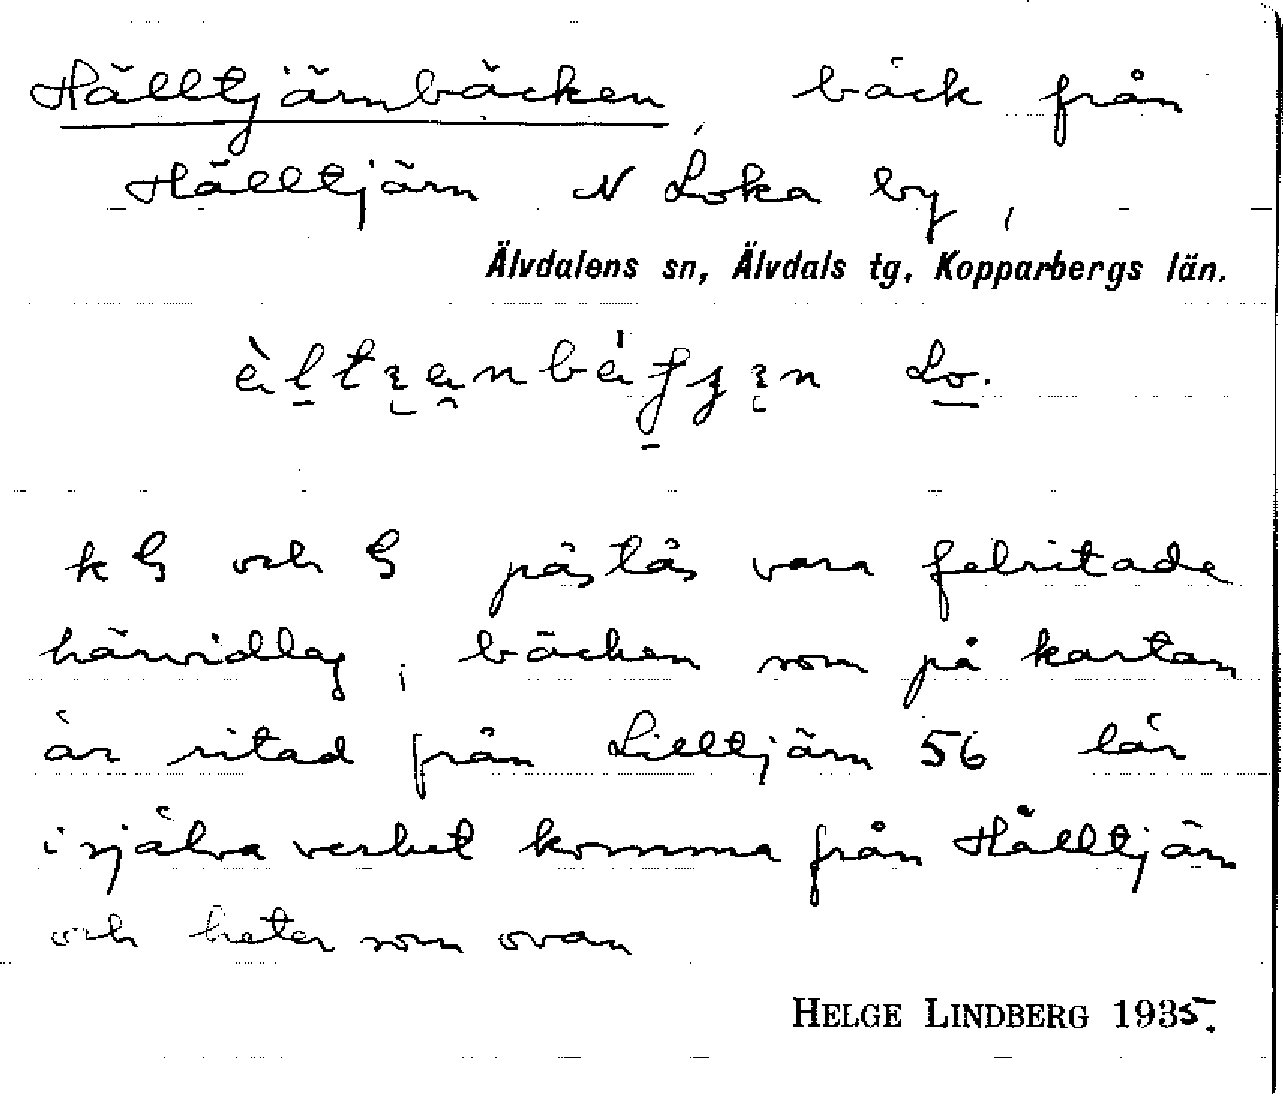 Hälltjärnbäcken, bäck från
Hälltjärn N Loka by,
Älvdalens sn, Älvdals tg, Kopparbergs län.
Lo.
k G och G påstås vara felritade
härvidlag, bäcken som på kartan
är ritad från Lilltjärn 56 lär
i själva verket komma från Hälltjärn
och heter som ovan
HELGE LINDBERG 1935.